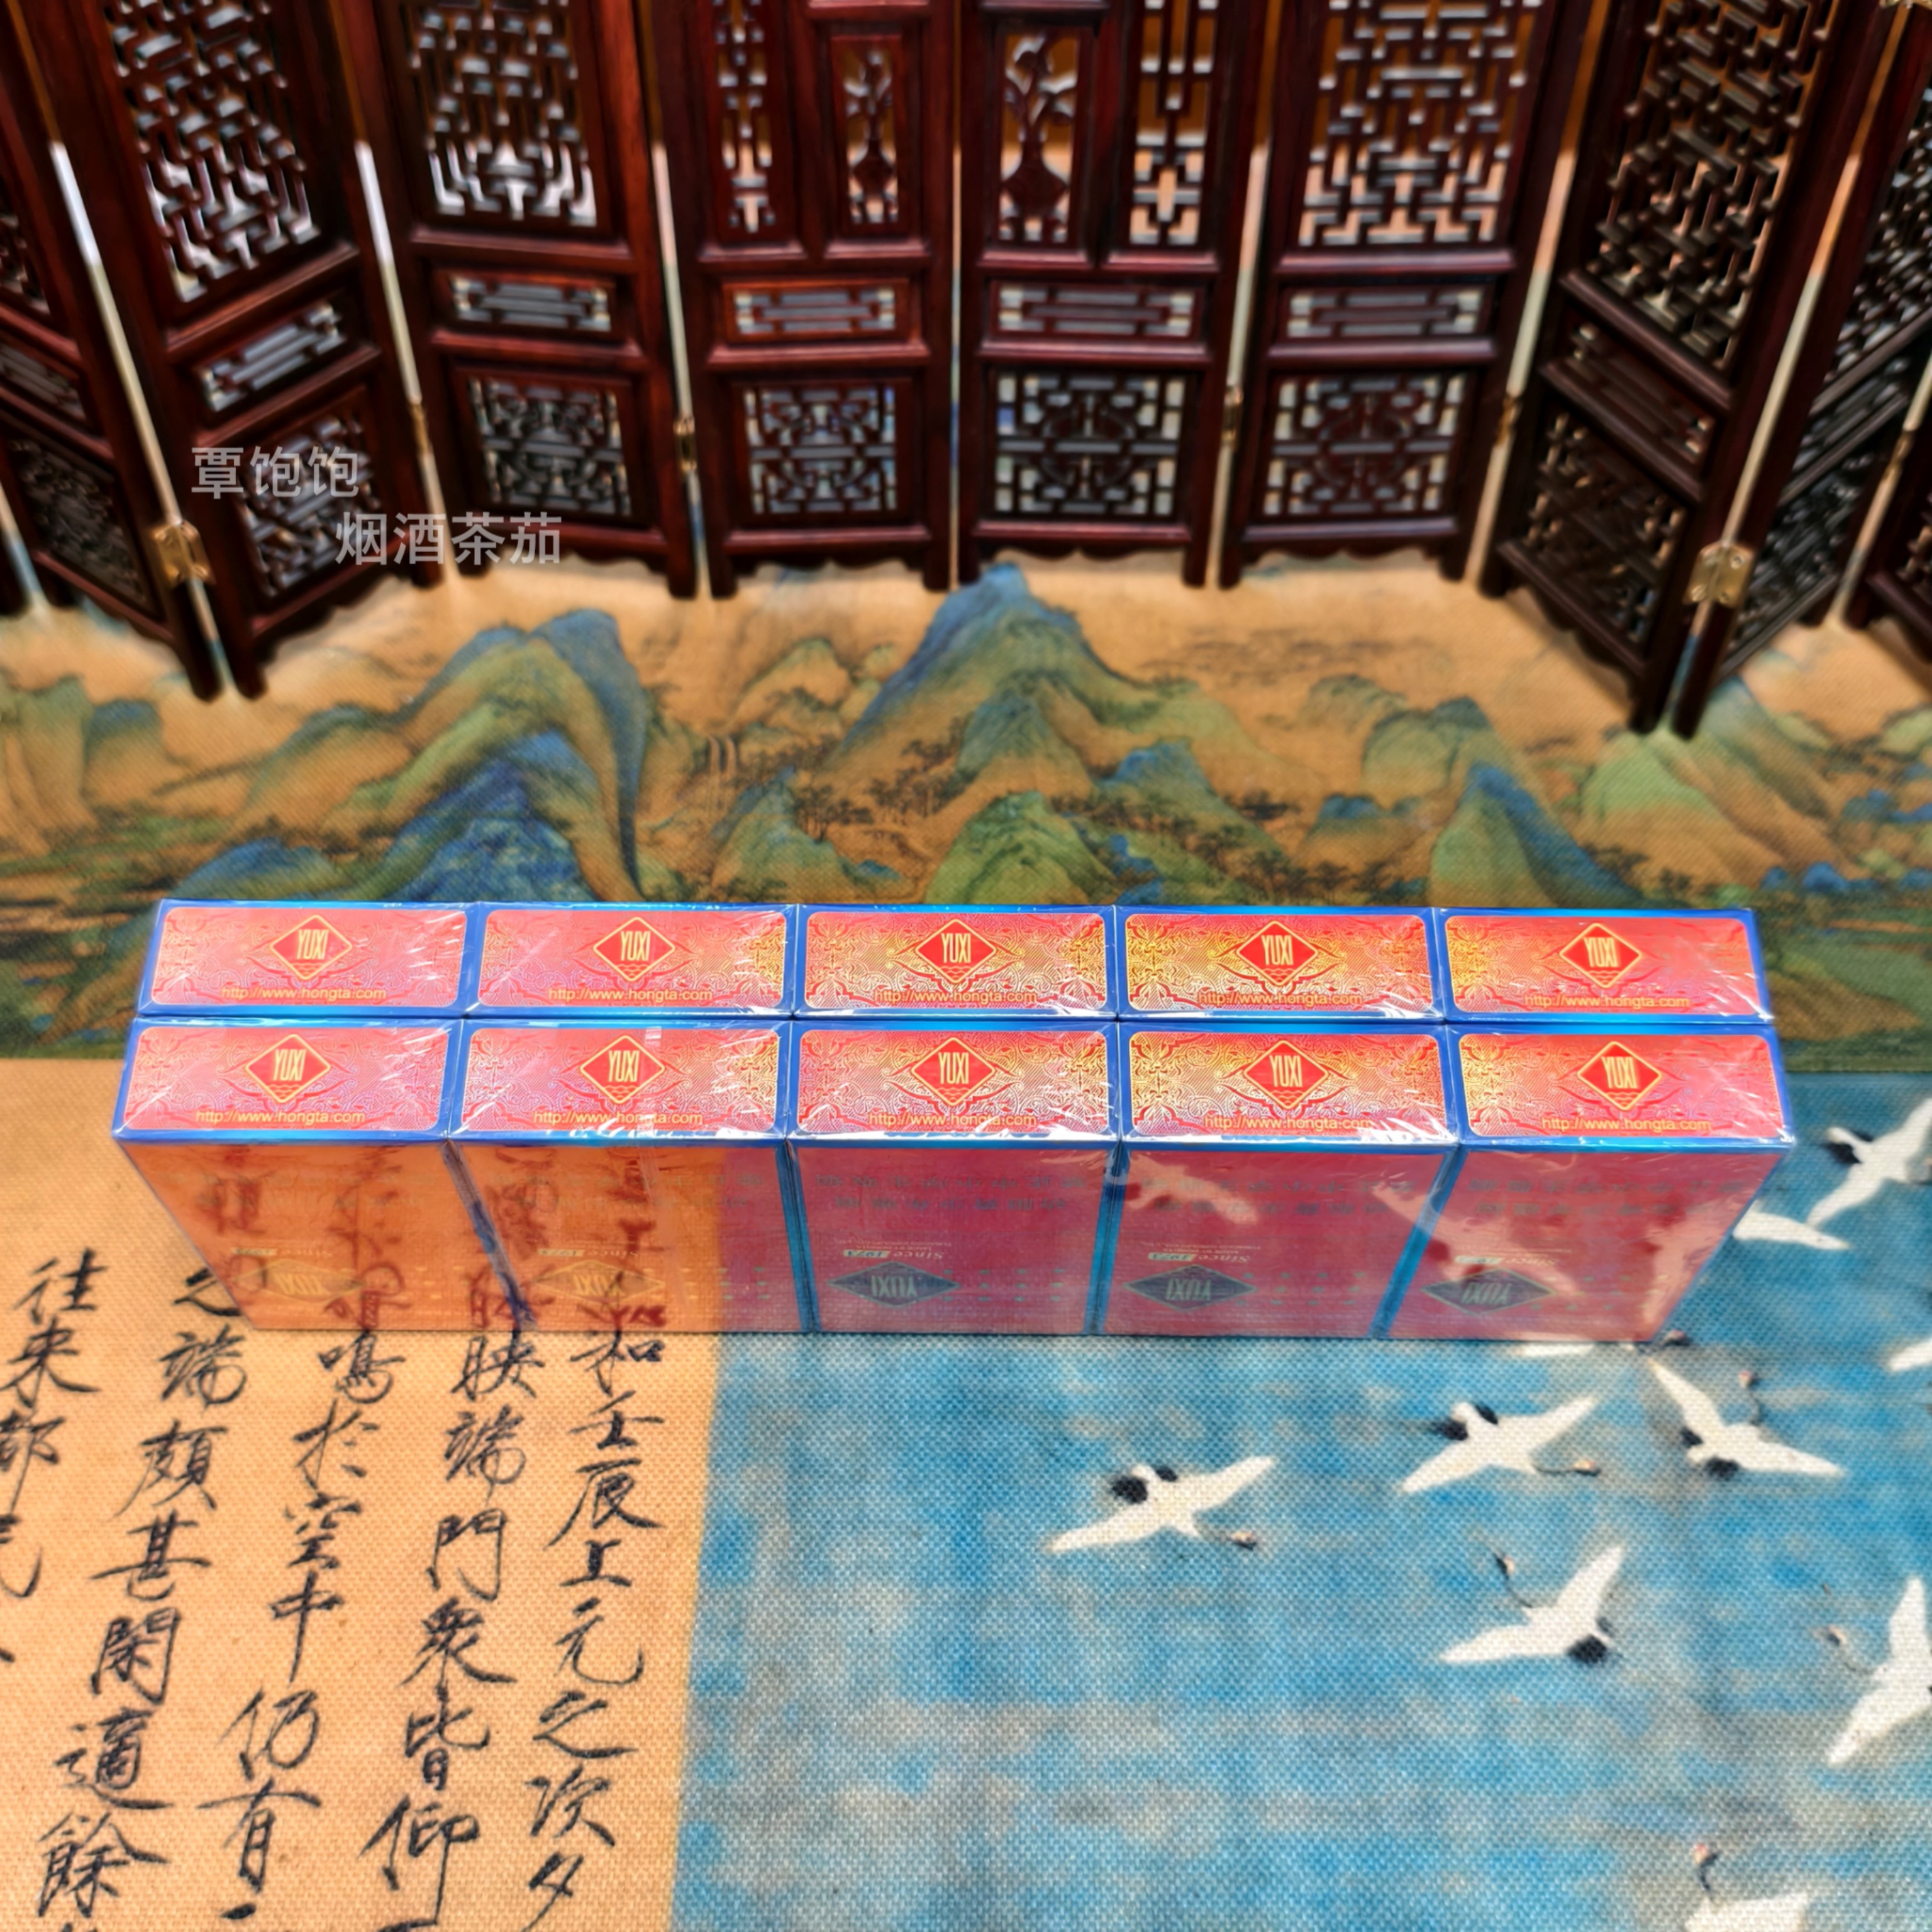 覃饱饱
烟酒茶茄
YUXI YUXI YUXI YUXI YUXI
http://www.hongta.com http://www.hongta.com http://www.hongta.com http://www.hongta.com http://www.hongta.com
YUXI YUXI YUXI YUXI YUXI
http://www.hongta.com http://www.hongta.com http://www.hongta.com http://www.hongta.com http://www.hongta.com
Since 1974 Since 1974 Since 1974
YUXI YUXI YUXI YUXI YUXI
壬辰上元之次夕
映端門衆皆仰
鳴於空中仍有二
之端頗甚閑適餘
往来都